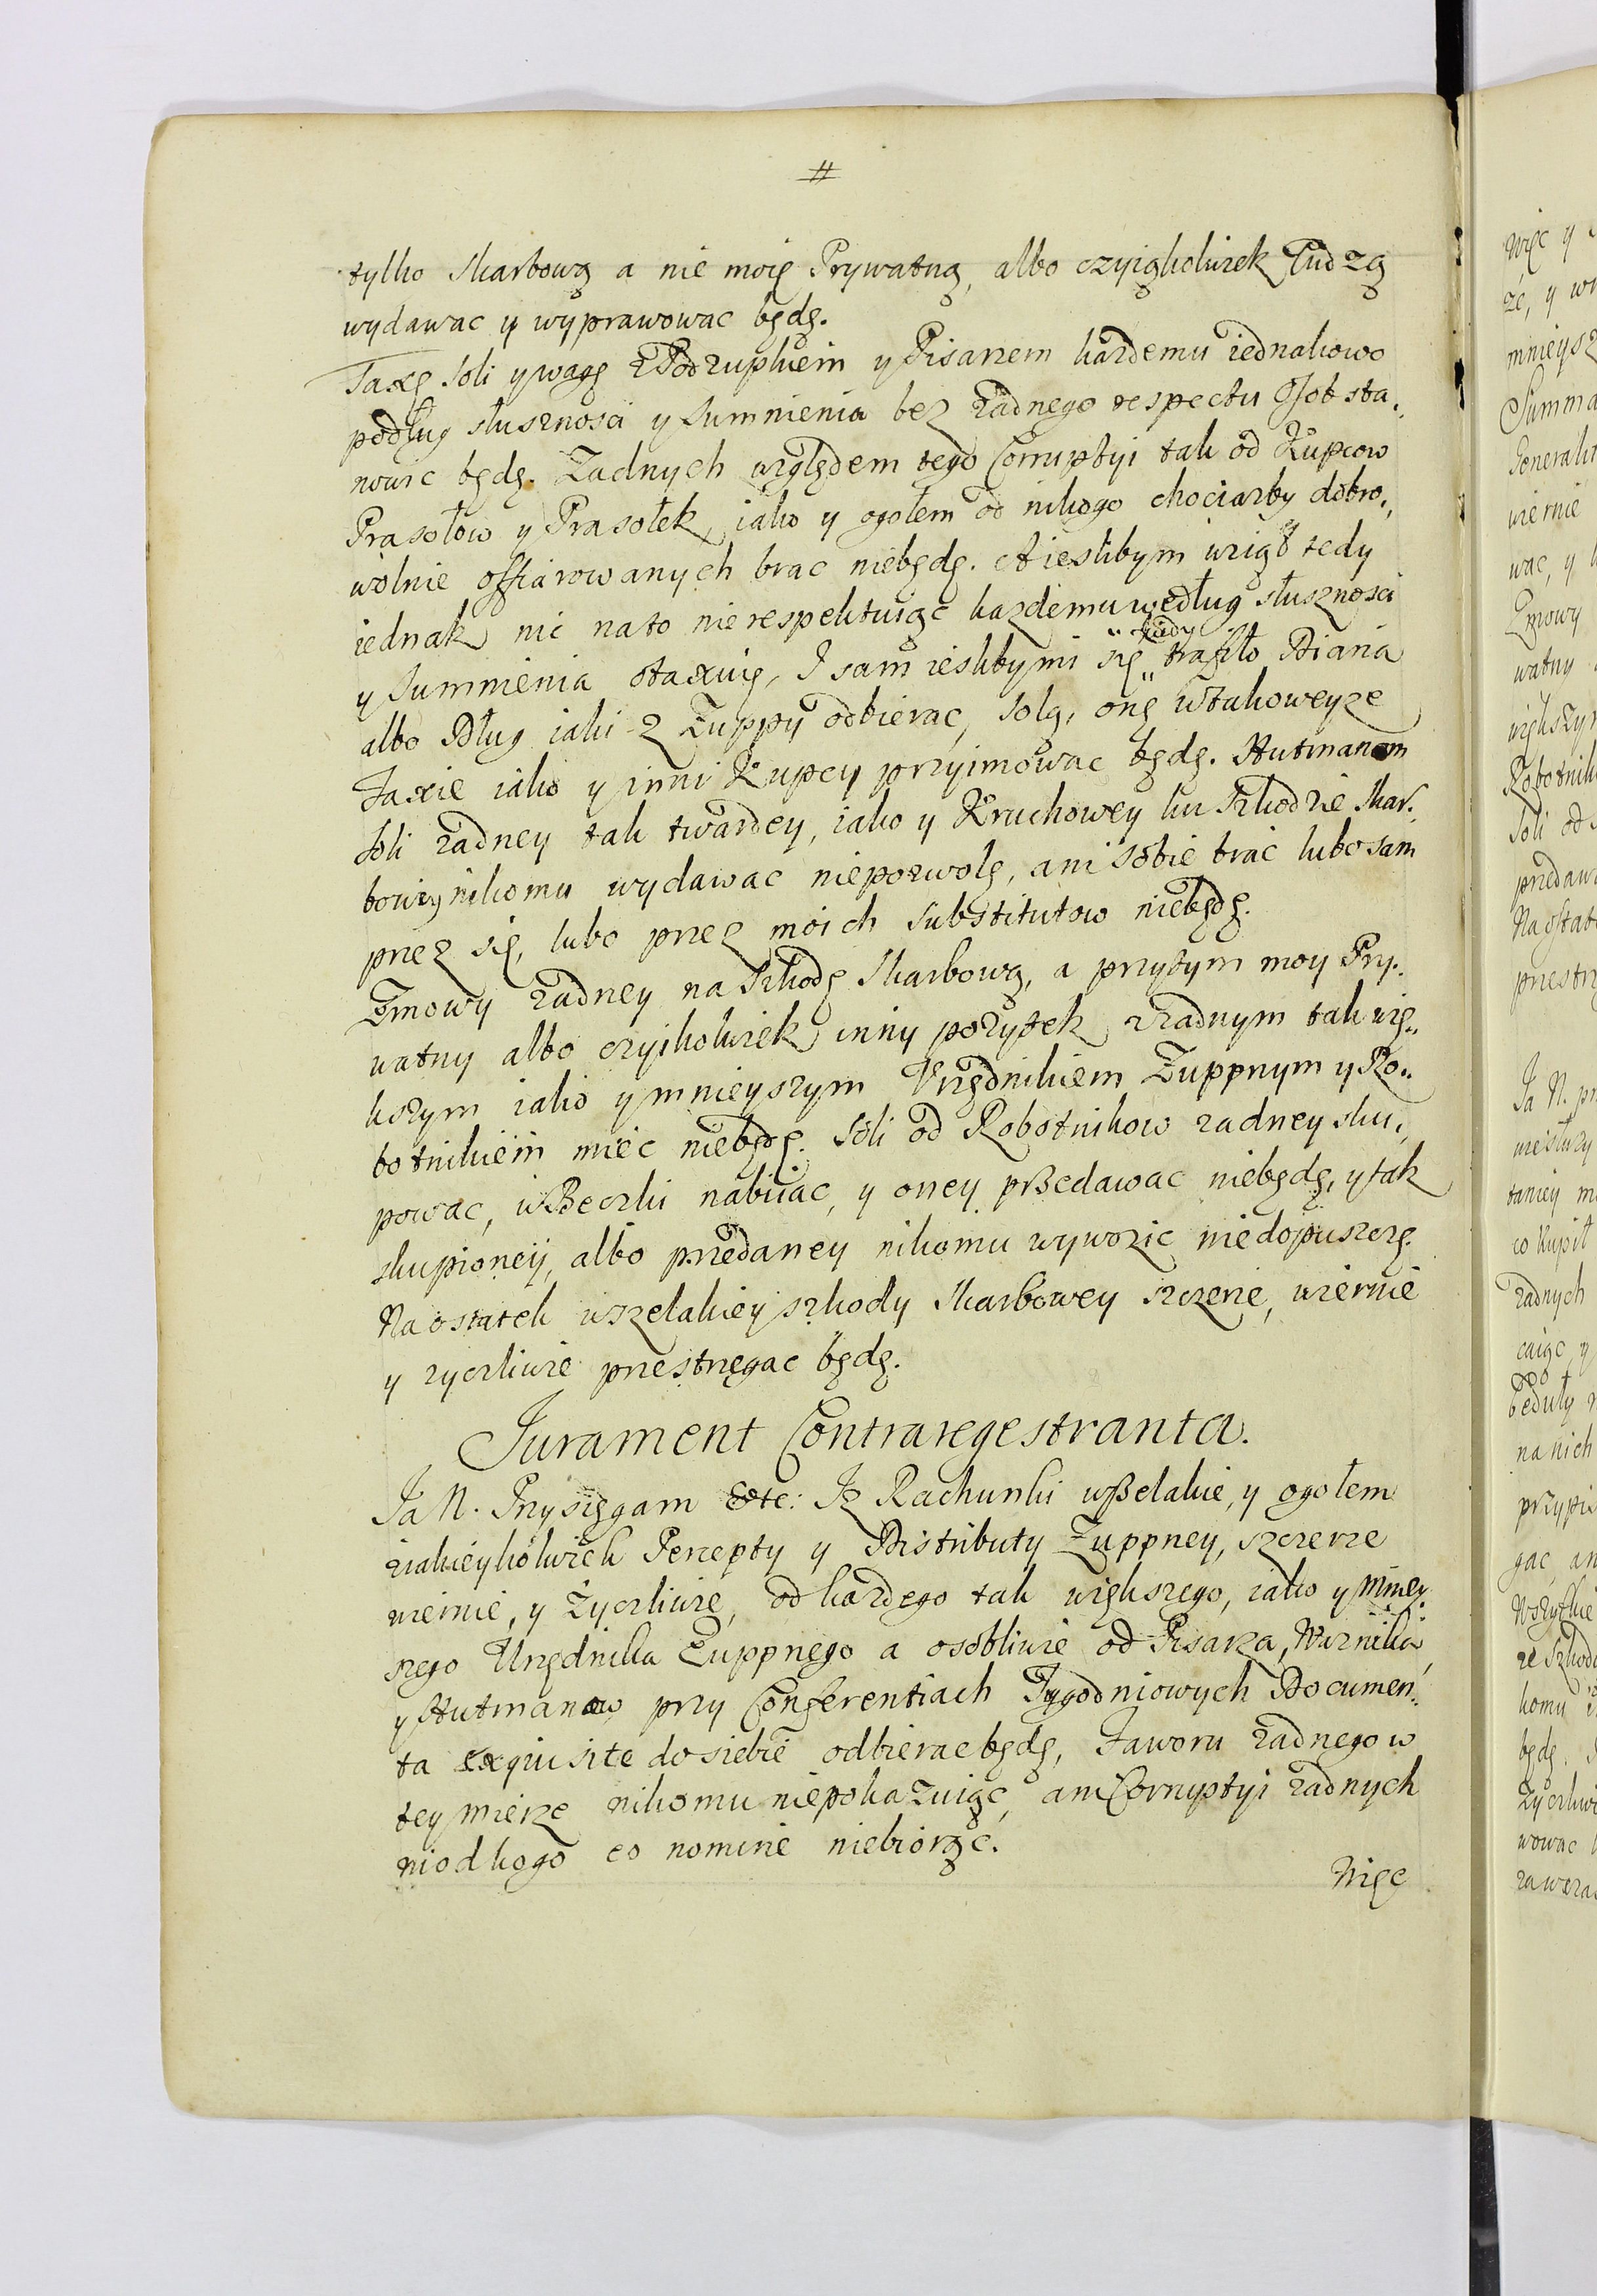 #
tylko skarbową a nie moię Prywatną, albo czyiąkolwiek Cudzą
wydawac y wyprawowac będę.
Taxę soli y wagę z Podzupkiem y Pisarzem kazdemu iednakowo
podług słusznosci y sumnienia bez zadnego respectu Osob sta,,
nowic będę. Zadnych względem tego Corruptyi tak od Kupcow
Prasołow y Prasołek, iako y ogołem od nikogo chociazby dobro,,
wolnie offiarowanych brac niebędę. A iesliбym wziął tedy
iednak nic nato nierespektuiąc kazdemu według słusznosci
y sumnienia otaxuię, I sam iesliby mi się " kiedy " trafiło Diaria
albo Dług iaki z Zuppy odbierac, solą, onę wtakoweyze
Taxie iako y inni Kupcy przyimowac będę. Hutmanom
soli zadney tak twardey, iako y Kruchowey ku szkodzie skar,,
bowey nikomu wydawac niepozwolę, ani sobie brac lubo sam
przez się, lubo przez moich substitutow niebędę.
Zmowy zadney na szkodę skarbową, a przytym moy Pry,,
watny albo czyikolwiek inny pozytek z zadnym tak wię,,
kszym iako y mnieyszym Urzędnikiem Zuppnym y Ro,,
botnikiem miec niebędę. Soli od Robotnikow zadney sku,,
powac, w Beczki nabiiac, y oney przedawac niebędę, y tak
skupioney, albo przedaney nikomu wywozic niedopuszczę.
Na ostatek wszelakiey szkody skarbowey szczerze, wiernie
y zyczliwie przestrzegac będę.
Jurament Contraregestranta.
Ja N. Przysięgam Etc: Iz Rachunki wszelakie, y ogołem
ziakieykolwiek Percepty y Distributy Zuppney, szczerze
wiernie, y Zyczliwie, od kazdego tak większego, iako y mniey
szego Urzędnika Zuppnego a osobliwie od Pisarza, Warnika
y Hutmanow przy Conferentiach Tygodniowych Documen,,
ta exquisite do siebie odbierac będę, Faworu zadnego w
tey mierze nikomu niepokazuiąc, ani Corruptyi zadnych
niodkogo eo nomine niebiorąc.
Więc